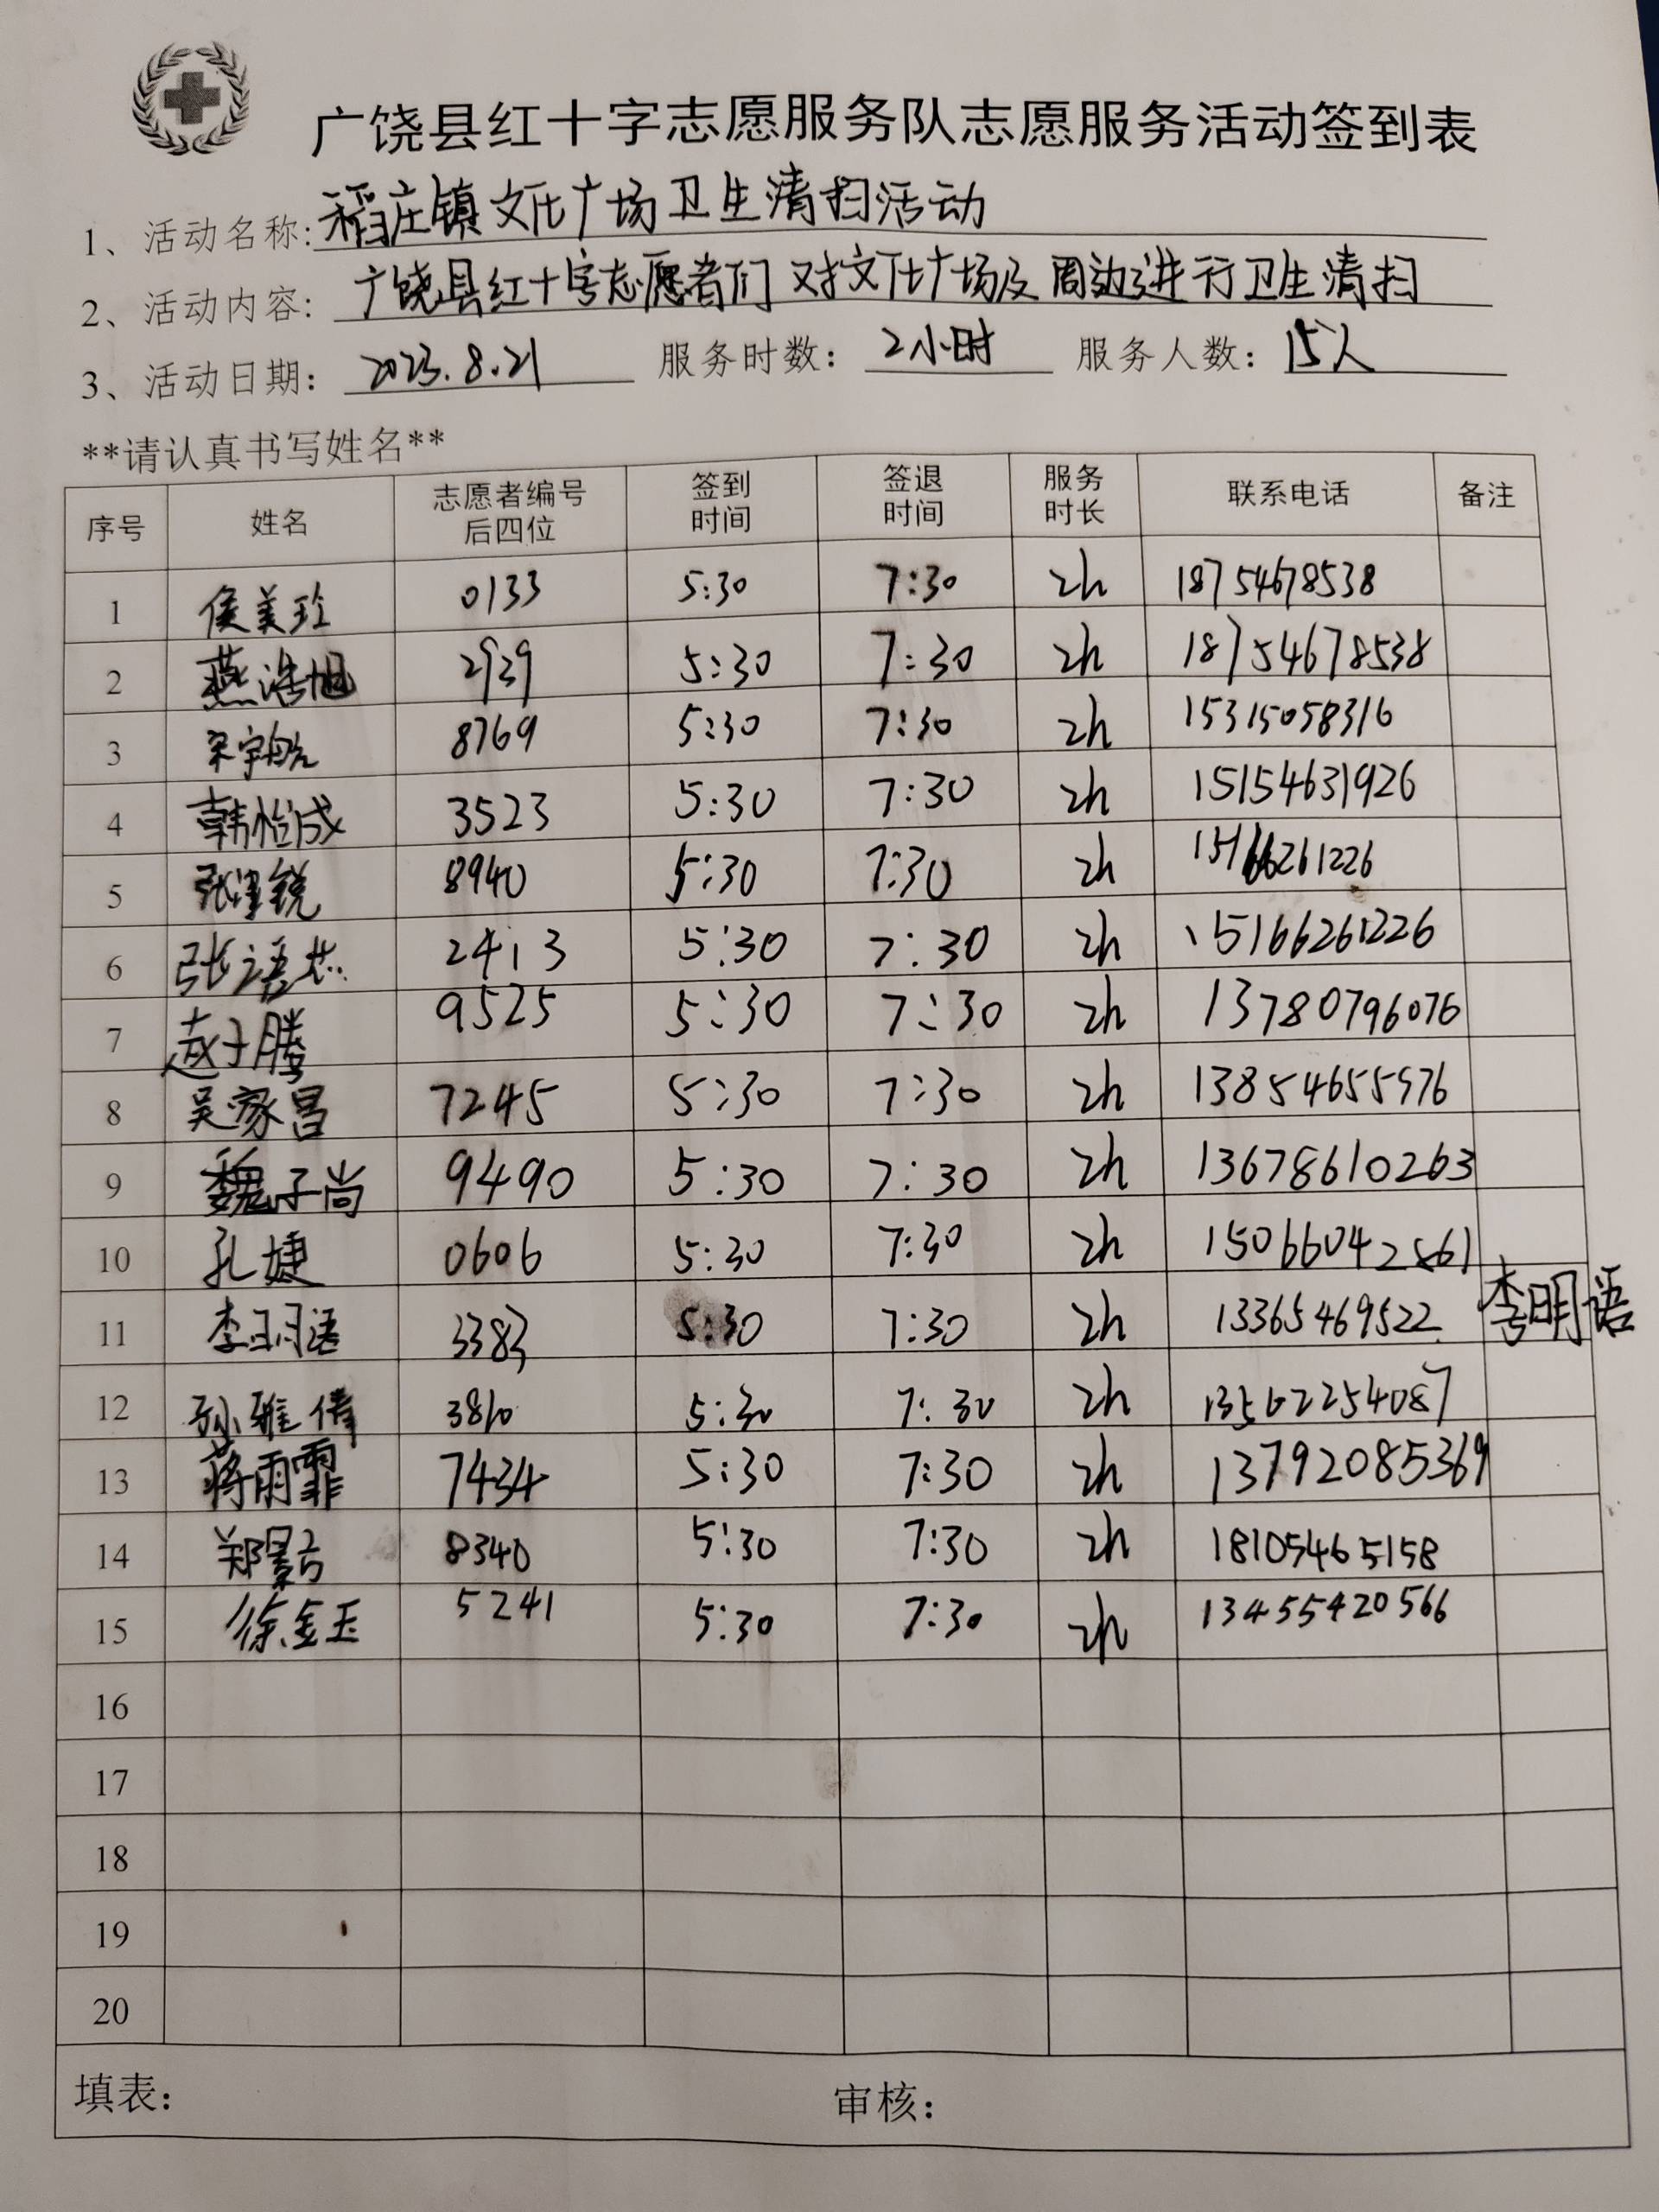 广饶县红十字志愿服务队志愿服务活动签到表
1、活动名称:稻庄镇文化广场卫生清扫活动
2、活动内容:广饶县红十字志愿者们对文化广场及周边进行卫生清扫
3、活动日期:2023.8.21 服务时数:2小时 服务人数:15人
**请认真书写姓名**
序号 姓名 志愿者编号后四位 签到时间 签退时间 服务时长 联系电话 备注
1 侯美玲 0133 5:30 7:30 2h 18754678538
2 燕浩旭 2939 5:30 7:30 2h 18754678538
3 宋宇航 8769 5:30 7:30 2h 15315058316
4 韩怡成 3523 5:30 7:30 2h 15154631926
5 8940 5:30 7:30 2h 15166261226
6 张语芯 2413 5:30 7:30 2h 15166261226
7 赵子腾 9525 5:30 7:30 2h 13780796076
8 吴家昌 7245 5:30 7:30 2h 13854655976
9 魏子尚 9490 5:30 7:30 2h 13678610263
10 孔婕 0606 5:30 7:30 2h 15066042861
11 李明语 3383 5:30 7:30 2h 13365469522 李明语
12 孙雅倩 3810 5:30 7:30 2h 13562254087
13 蒋雨霏 7434 5:30 7:30 2h 13792085369
14 8340 5:30 7:30 2h 18105465158
15 徐金玉 5241 5:30 7:30 2h 13455420566
16
17
18
19
20
填表: 审核: